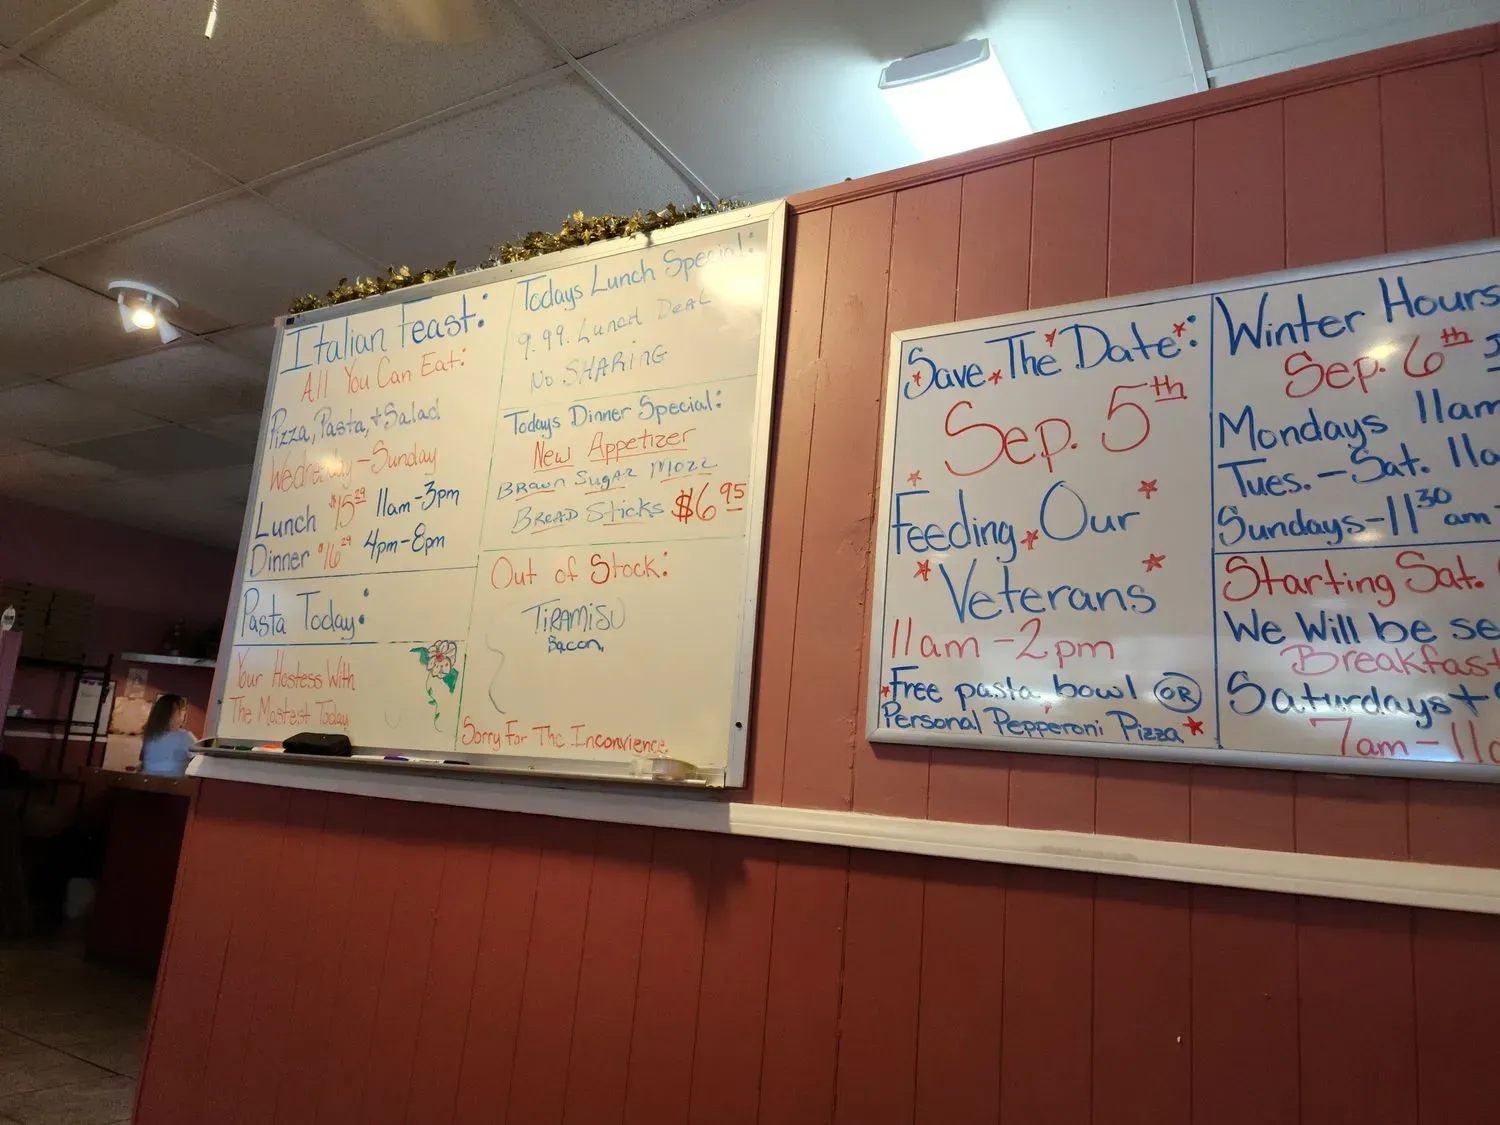 Italian Feast:
All You Can Eat:
Pizza, Pasta, + Salad
Wednesday - Sunday
Lunch $15 29 11am - 3pm
Dinner $16 29 4pm - 8pm
Pasta Today:
Your Hostess With
The Mostest Today
Todays Lunch Special:
9.99. Lunch Deal
No SHARING
Todays Dinner Special:
New Appetizer
Brown Sugar Mozz
Bread Sticks $6 95
Out of Stock:
TIRAMISU
Bacon,
Sorry For The Inconvience
Save The Date:
Sep. 5th
Feeding Our
Veterans
11am - 2pm
Free pasta bowl OR
Personal Pepperoni Pizza
Winter Hours
Sep. 6th
Mondays 11am
Tues. - Sat. 11a
Sundays - 11 30 am
Starting Sat.
We Will be se
Breakfast
Saturdays +
7am - 11